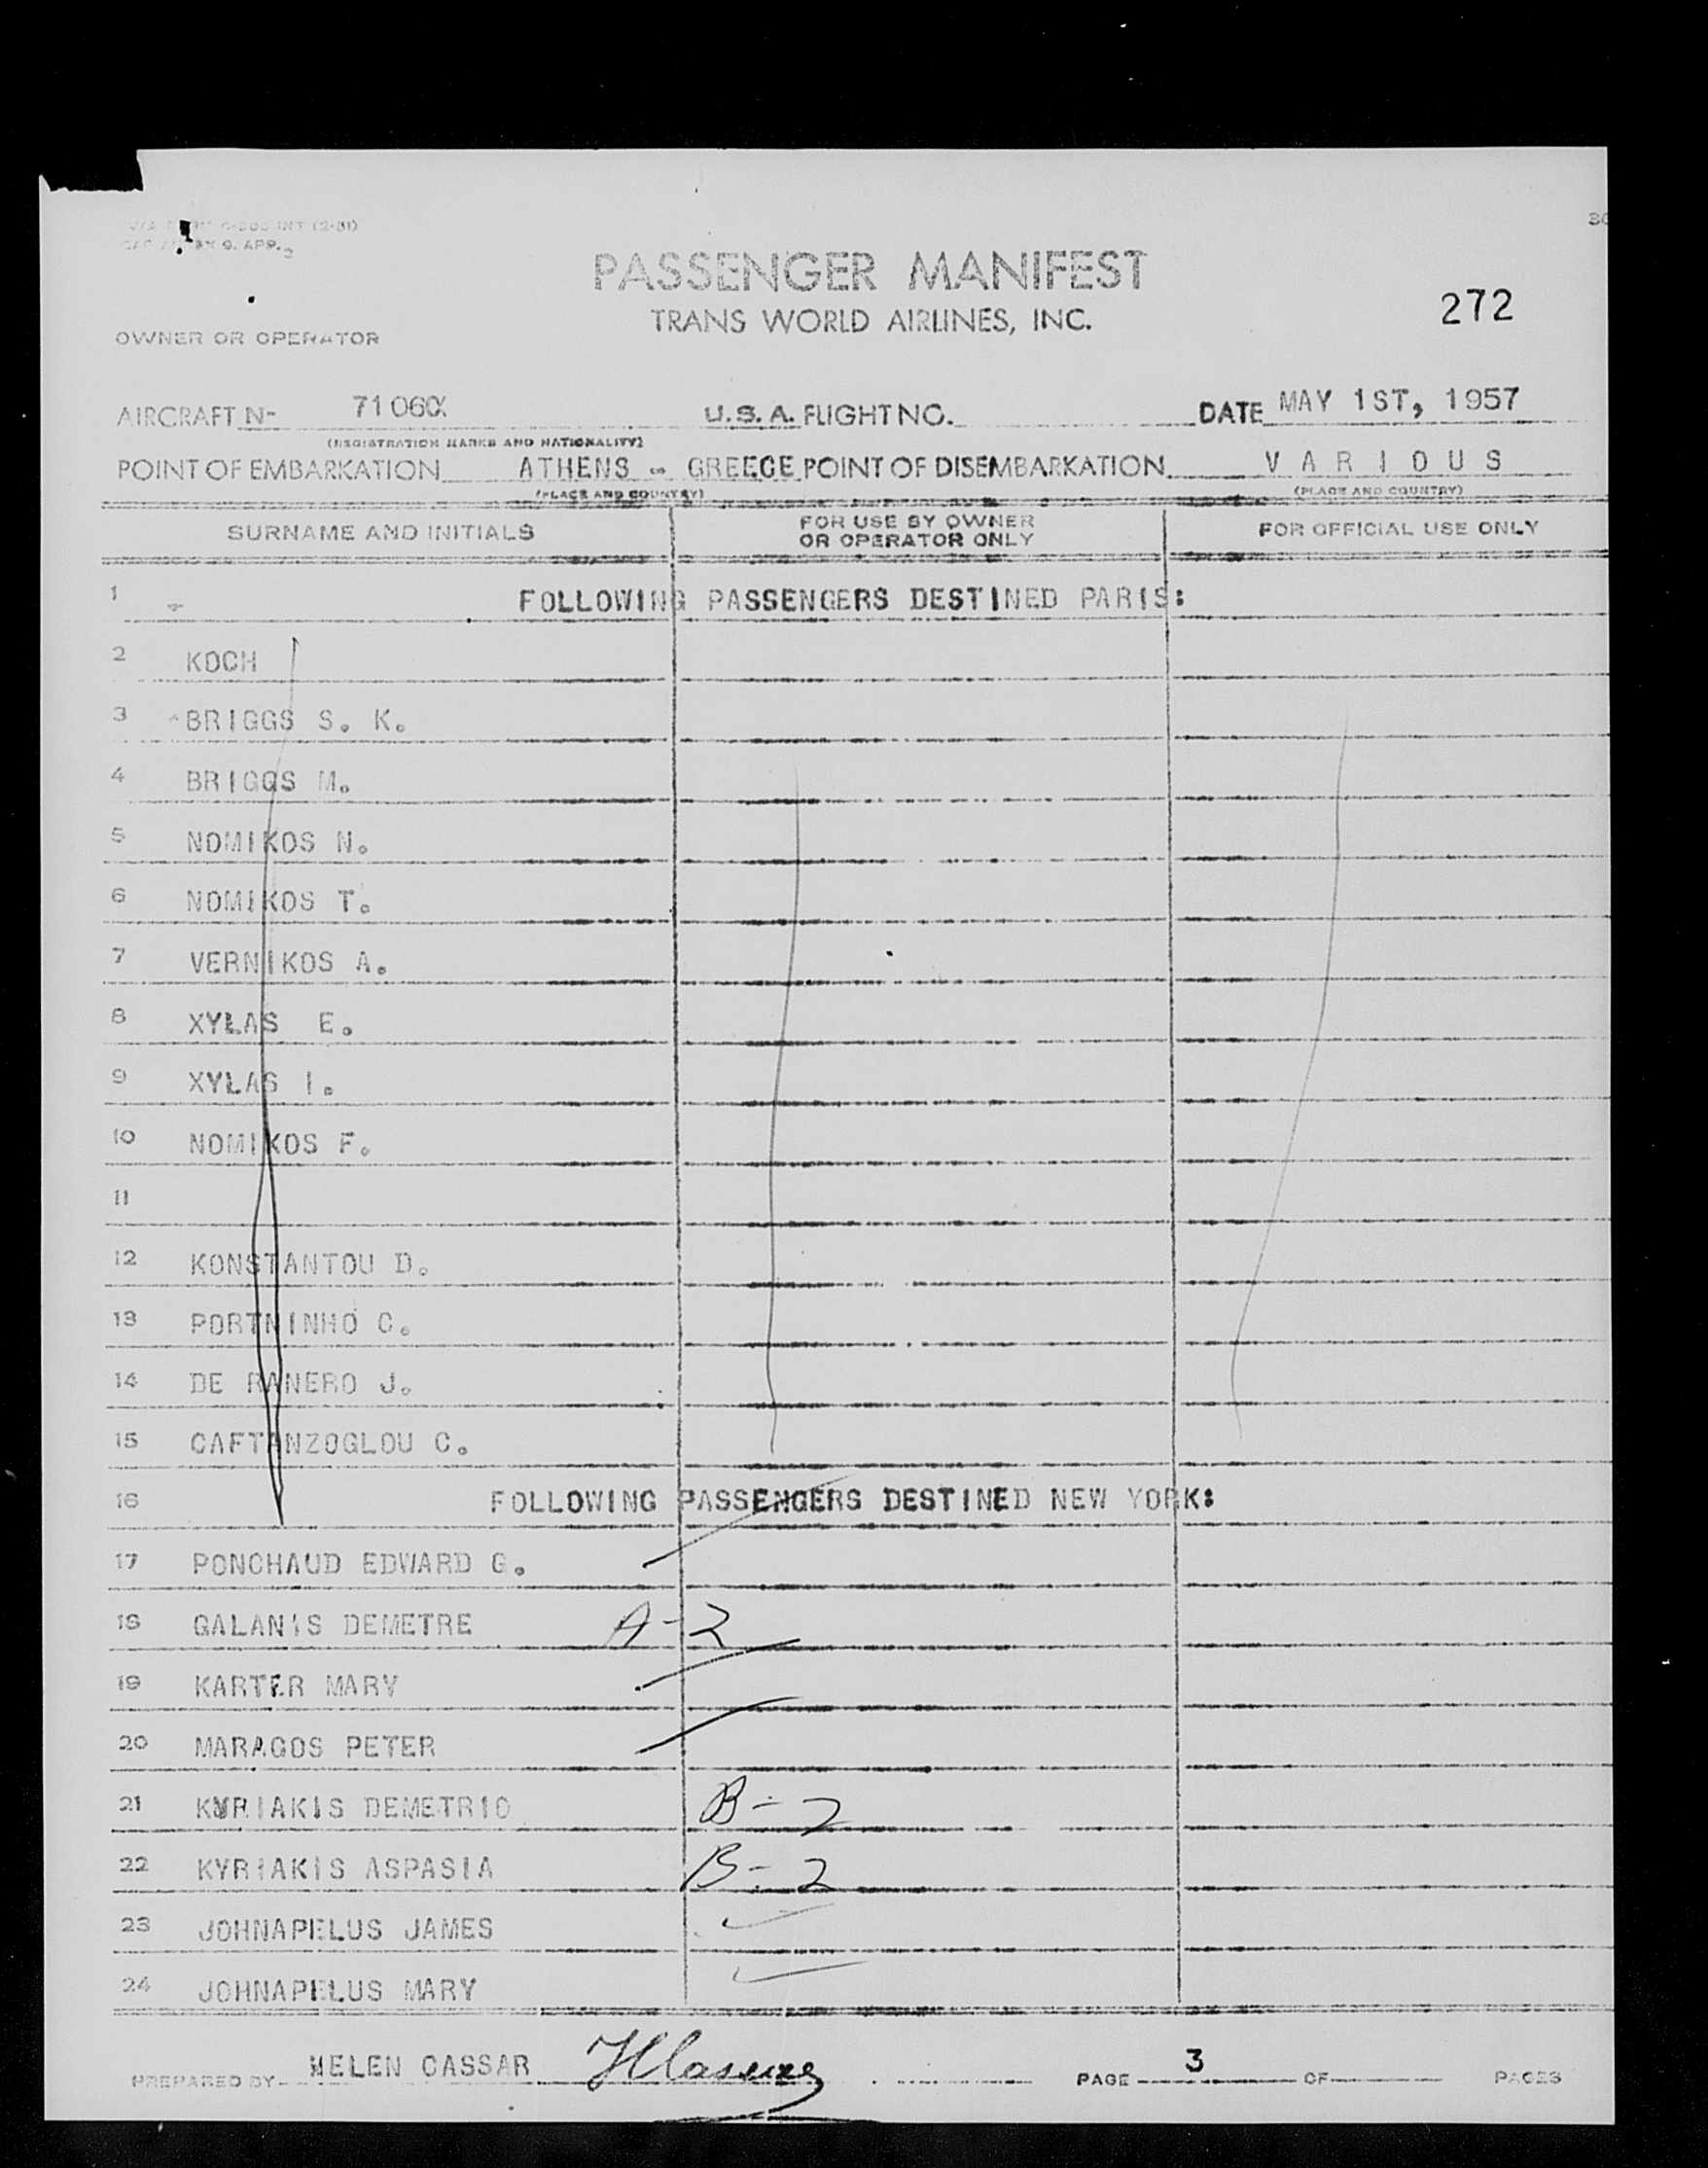 PASSENGER MANIFEST
TRANS WORLD AIRLINES, INC.
272
OWNER OR OPERATOR
AIRCRAFT N- 7106C U.S.A. FLIGHT NO. DATE MAY 1ST, 1957
(REGISTRATION MARKS AND NATIONALITY)
POINT OF EMBARKATION ATHENS - GREECE POINT OF DISEMBARKATION V A R I O U S
(PLACE AND COUNTRY) (PLACE AND COUNTRY)
SURNAME AND INITIALS FOR USE BY OWNER OR OPERATOR ONLY FOR OFFICIAL USE ONLY
1 FOLLOWING PASSENGERS DESTINED PARIS:
2 KOCH
3 BRIGGS S. K.
4 BRIGGS M.
5 NOMIKOS N.
6 NOMIKOS T.
7 VERNIKOS A.
8 XYLAS E.
9 XYLAS I.
10 NOMIKOS F.
11
12 KONSTANTOU D.
13 PORTNINHO C.
14 DE RANERO J.
15 CAFTANZOGLOU C.
16 FOLLOWING PASSENGERS DESTINED NEW YORK:
17 PONCHAUD EDWARD G.
18 GALANIS DEMETRE A-2
19 KARTER MARY
20 MARAGOS PETER
21 KYRIAKIS DEMETRIO B-2
22 KYRIAKIS ASPASIA B-2
23 JOHNAPELUS JAMES
24 JOHNAPELUS MARY
PREPARED BY HELEN CASSAR PAGE 3 OF PAGES